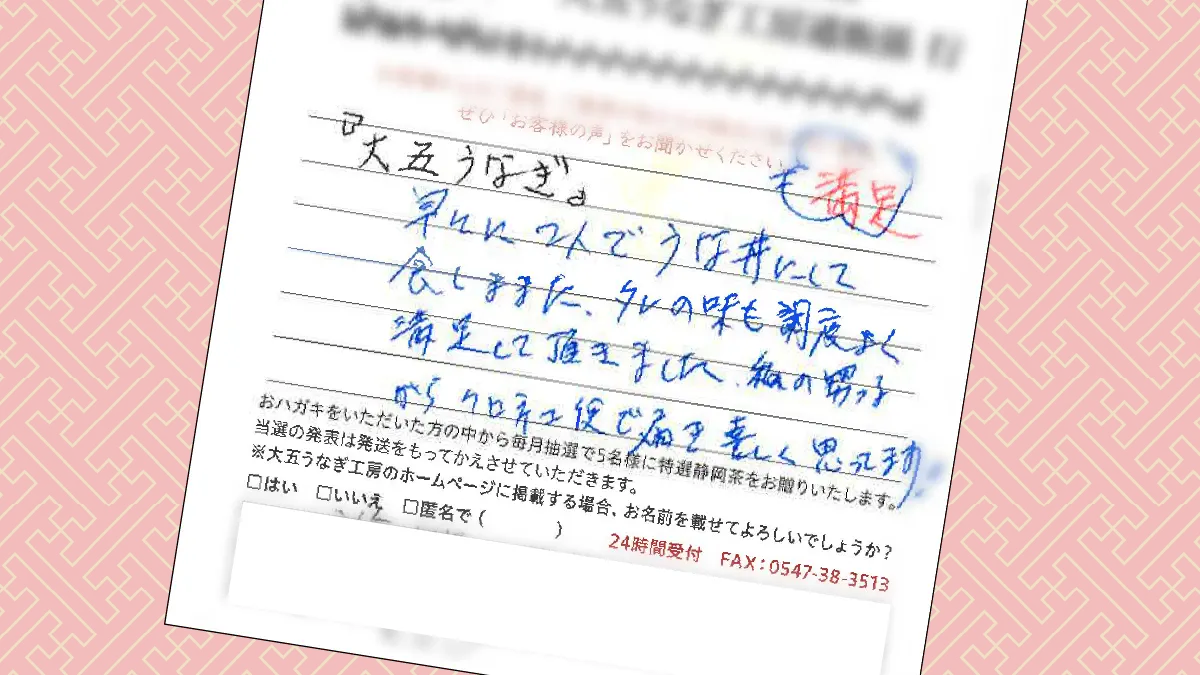 大五うなぎ工房通販係 行
ぜひ「お客様の声」をお聞かせください
も満足
『大五うなぎ』
早々に2人でうな丼にして
食しました、タレの味も調度よく
満足して頂きました、の男の子
からクロネコ便で届き喜しく思ってます。
おハガキをいただいた方の中から毎月抽選で5名様に特選静岡茶をお贈りいたします。
当選の発表は発送をもってかえさせていただきます。
※大五うなぎ工房のホームページに掲載する場合、お名前を載せてよろしいでしょうか？
□はい □いいえ □匿名で（ ）
24時間受付 FAX：0547-38-3513